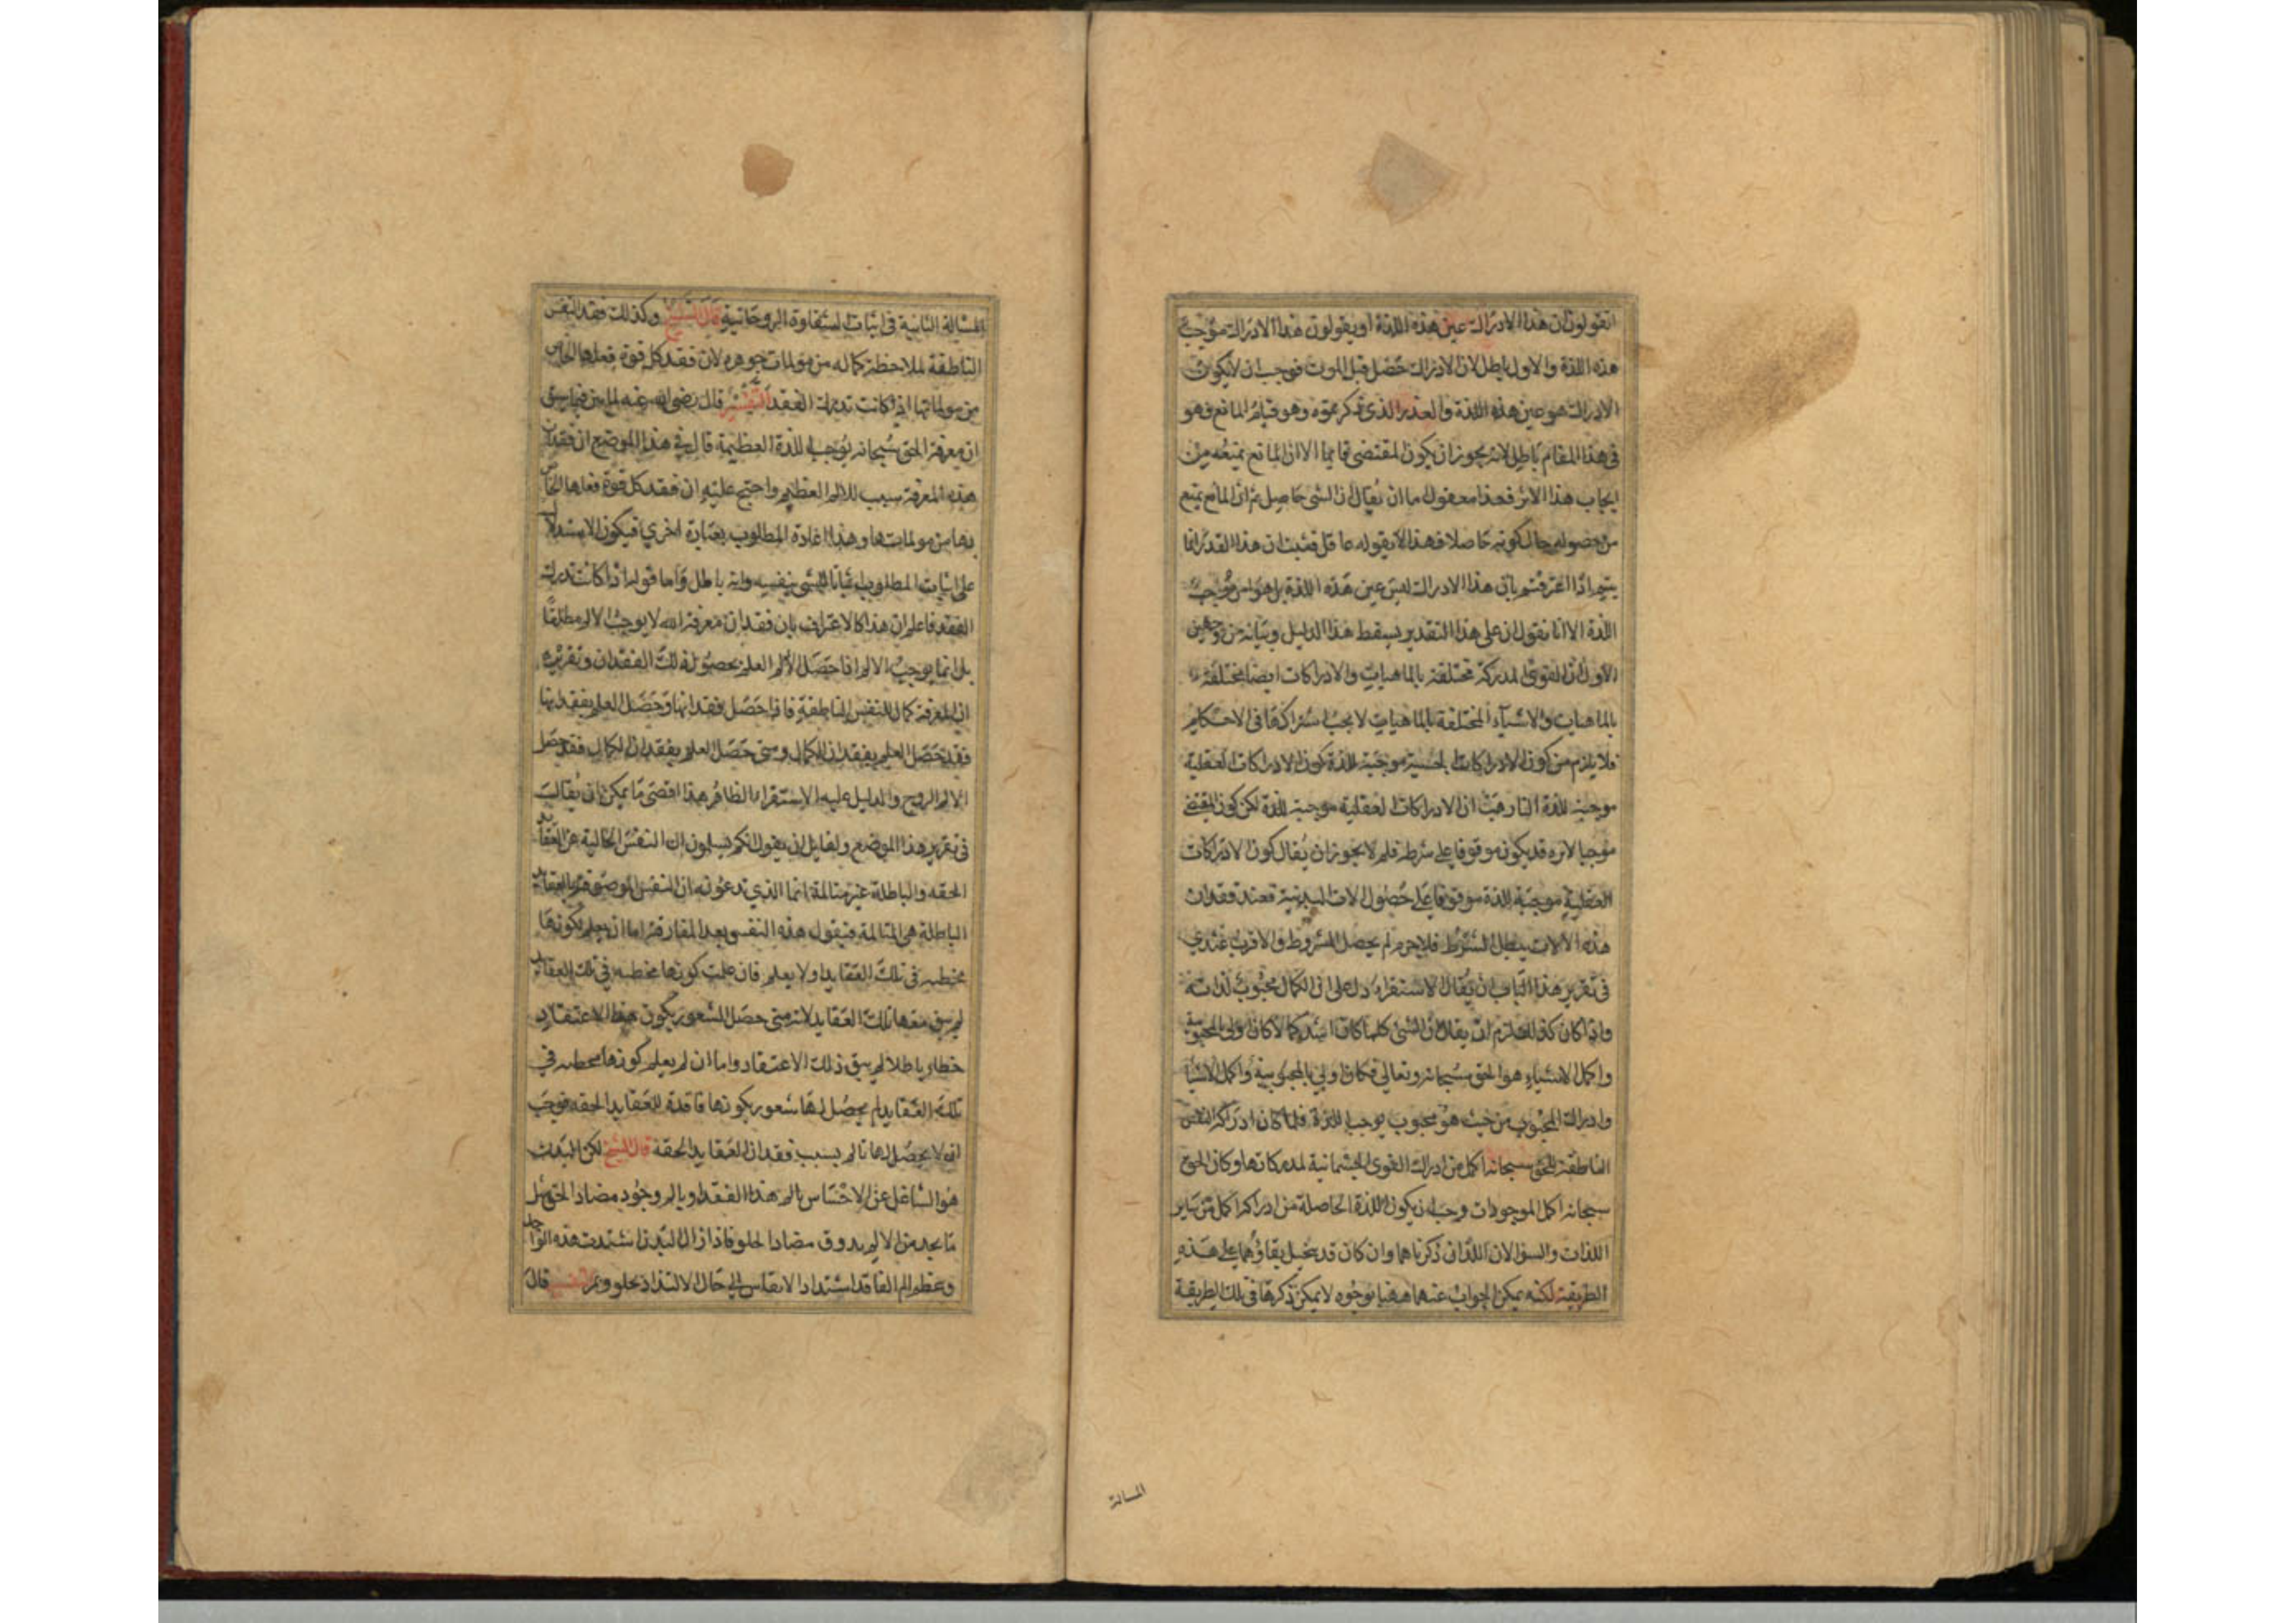 اتقولون ان هذا الادراك عين هذه اللذة او يقولون هذا الادراك موجب
هذه اللذة والاول باطل لان الادراك حصل قبل الموت فوجب ان لا يكون
الادراك هو عين هذه اللذة والعذر الذى ذكرتموه وهو قيام المانع فهو
فى هذا المقام باطل لانه يجوز ان يكون المقتضى قايما الا ان المانع يمنعه من
ايجاب هذا الاثر فهذا معقول اما ان يُقال ان الشى حاصل ثم ان المانع يمنع
من حصوله حال كونه حاصلا فهذا لا يقوله عاقل فثبت ان هذا القدر انما
يتم اذا اعترفتم بان هذا الادراك ليس عين هذه اللذة بل هو امر موجب
اللذة الا انا نقول ان على هذا التقدير يسقط هذا الدليل وبيانه من وجهين
الاول ان القوى المدركة مختلفة بالماهيات والادراكات ايضا مختلفة
بالماهيات والاشياء المختلفة بالماهيات لا يجب اشتراكها فى الاحكام
فلا يلزم من كون الادراكات الحسية موجبة للذة كون الادراكات العقلية
موجبة للذة الثا هب ان الادراكات العقلية موجبة للذة لكن كون المقتضى
موجبا لاثره قد يكون موقوفا على شرط فلم لا يجوز ان يُقال كون الادراكات
العقلية موجبة للذة موقوفا على حصول الالات البدنية فعند فقدان
هذه الالات يبطل الشرط فلا جرم لم يحصل المشروط والاقرب عندي
فى تقرير هذا الباب ان يُقال الاستقراء دل على ان الكمال محبوب لذاته
واذا كان كذلك لزم ان يقال ان الشى كلما كان اشد كمالا كان اولى بالمحبوبية
واكمل الاشياء هو الحق سبحانه وتعالى فكان اولي بالمحبوبية واكمل الاشيا
وادراك المحبوب من حيث هو محبوب يوجب اللذة فلما كان ادراك النفس
الناطقة للحق سبحانه اكمل من ادراك القوى الجسمانية لمدركاتها وكان الحق
سبحانه اكمل الموجودات وجب ان يكون اللذة الحاصلة من ادراكه اكمل من ساير
اللذات والسؤالان اللذان ذكرناهما وان كان قد يخيل بقاؤهما على هذه
الطريقة لكنه يمكن الجواب عنهما ههنا بوجوه لا يمكن ذكرها فى تلك الطريقة
المسالة
المسالة الثانية فى اثبات الشقاوة الروحانية قال الشيخ وكذلك فقد النفس
الناطقة لملاحظة كماله من مولمات جوهره لان فقد كل قوة فعلها الخاص
من مولماتها اذا كانت تدرك الفقد التفسير قال رضى الله عنه لما بين فيما سبق
ان معرفة الحق سبحانه توجب اللذة العظيمة قال فى هذا الموضع ان فقدان
هذه المعرفة سبب للالم العظيم واحتج عليه ان فقد كل قوة فعلها الخاص
بها من مولماتها وهذا اعادة المطلوب بعبارة اخرى فيكون الاستدلال
على اثبات المطلوب اثباتا للشى بنفسه وانه باطل واما قوله اذا كانت تدرك
الفقد فاعلم ان هذا كالاعتراف بان فقدان معرفة الله لا يوجب الالم مطلقا
بل انما يوجب الالم اذا حصل الالم العلم بحصول ذلك الفقدان وتقريره
ان المعرفة كمال للنفس الناطقة فاذا حصل فقدانها وحصل العلم بفقدانها
فقد حصل العلم بفقدان الكمال ومتى حصل العلم بفقدان الكمال فقد حصل
الالم الروح والدليل عليه الاستقراء الظاهر هذا اقصى ما يمكن ان يُقال
فى تقرير هذا الموضع ولقايل ان يقول انكم تسلمون ان النفس الخالية عن العقايد
الحقه والباطلة غير متالمة انما الذي تدعونه ان النفس الموصوفة بالعقايد
الباطلة هى المتالمة فنقول هذه النفس بعد المفارقة اما ان يعلم كونها
مخطيه فى تلك العقايد او لا يعلم فان علمت كونها مخطيه فى تلك العقايد
لم يبق معها تلك العقايد لانه متى حصل الشعور بكون هذا الاعتقاد
خطاء باطلا لم يبق ذلك الاعتقاد واما ان لم يعلم كونها مخطيه في
تلك العقايد لم يحصل لها شعور بكونها فاقدة للعقايد الحقه فوجب
ان لا يحصل لها تالم بسبب فقدان العقايد الحقة قال الشيخ لكن البدن
هو الشاغل عن الاحساس بالم هذا الفقد او بالم وجود مضاد الحق مثل
ما يجد من الالم بذوق مضاد الحلو فاذا زال البدن اشتدت هذه الواجد
وعظم الم الفاقد اشتدادا لا يقاس الى حال الالتذاذ بحلو ومر التفسير قال